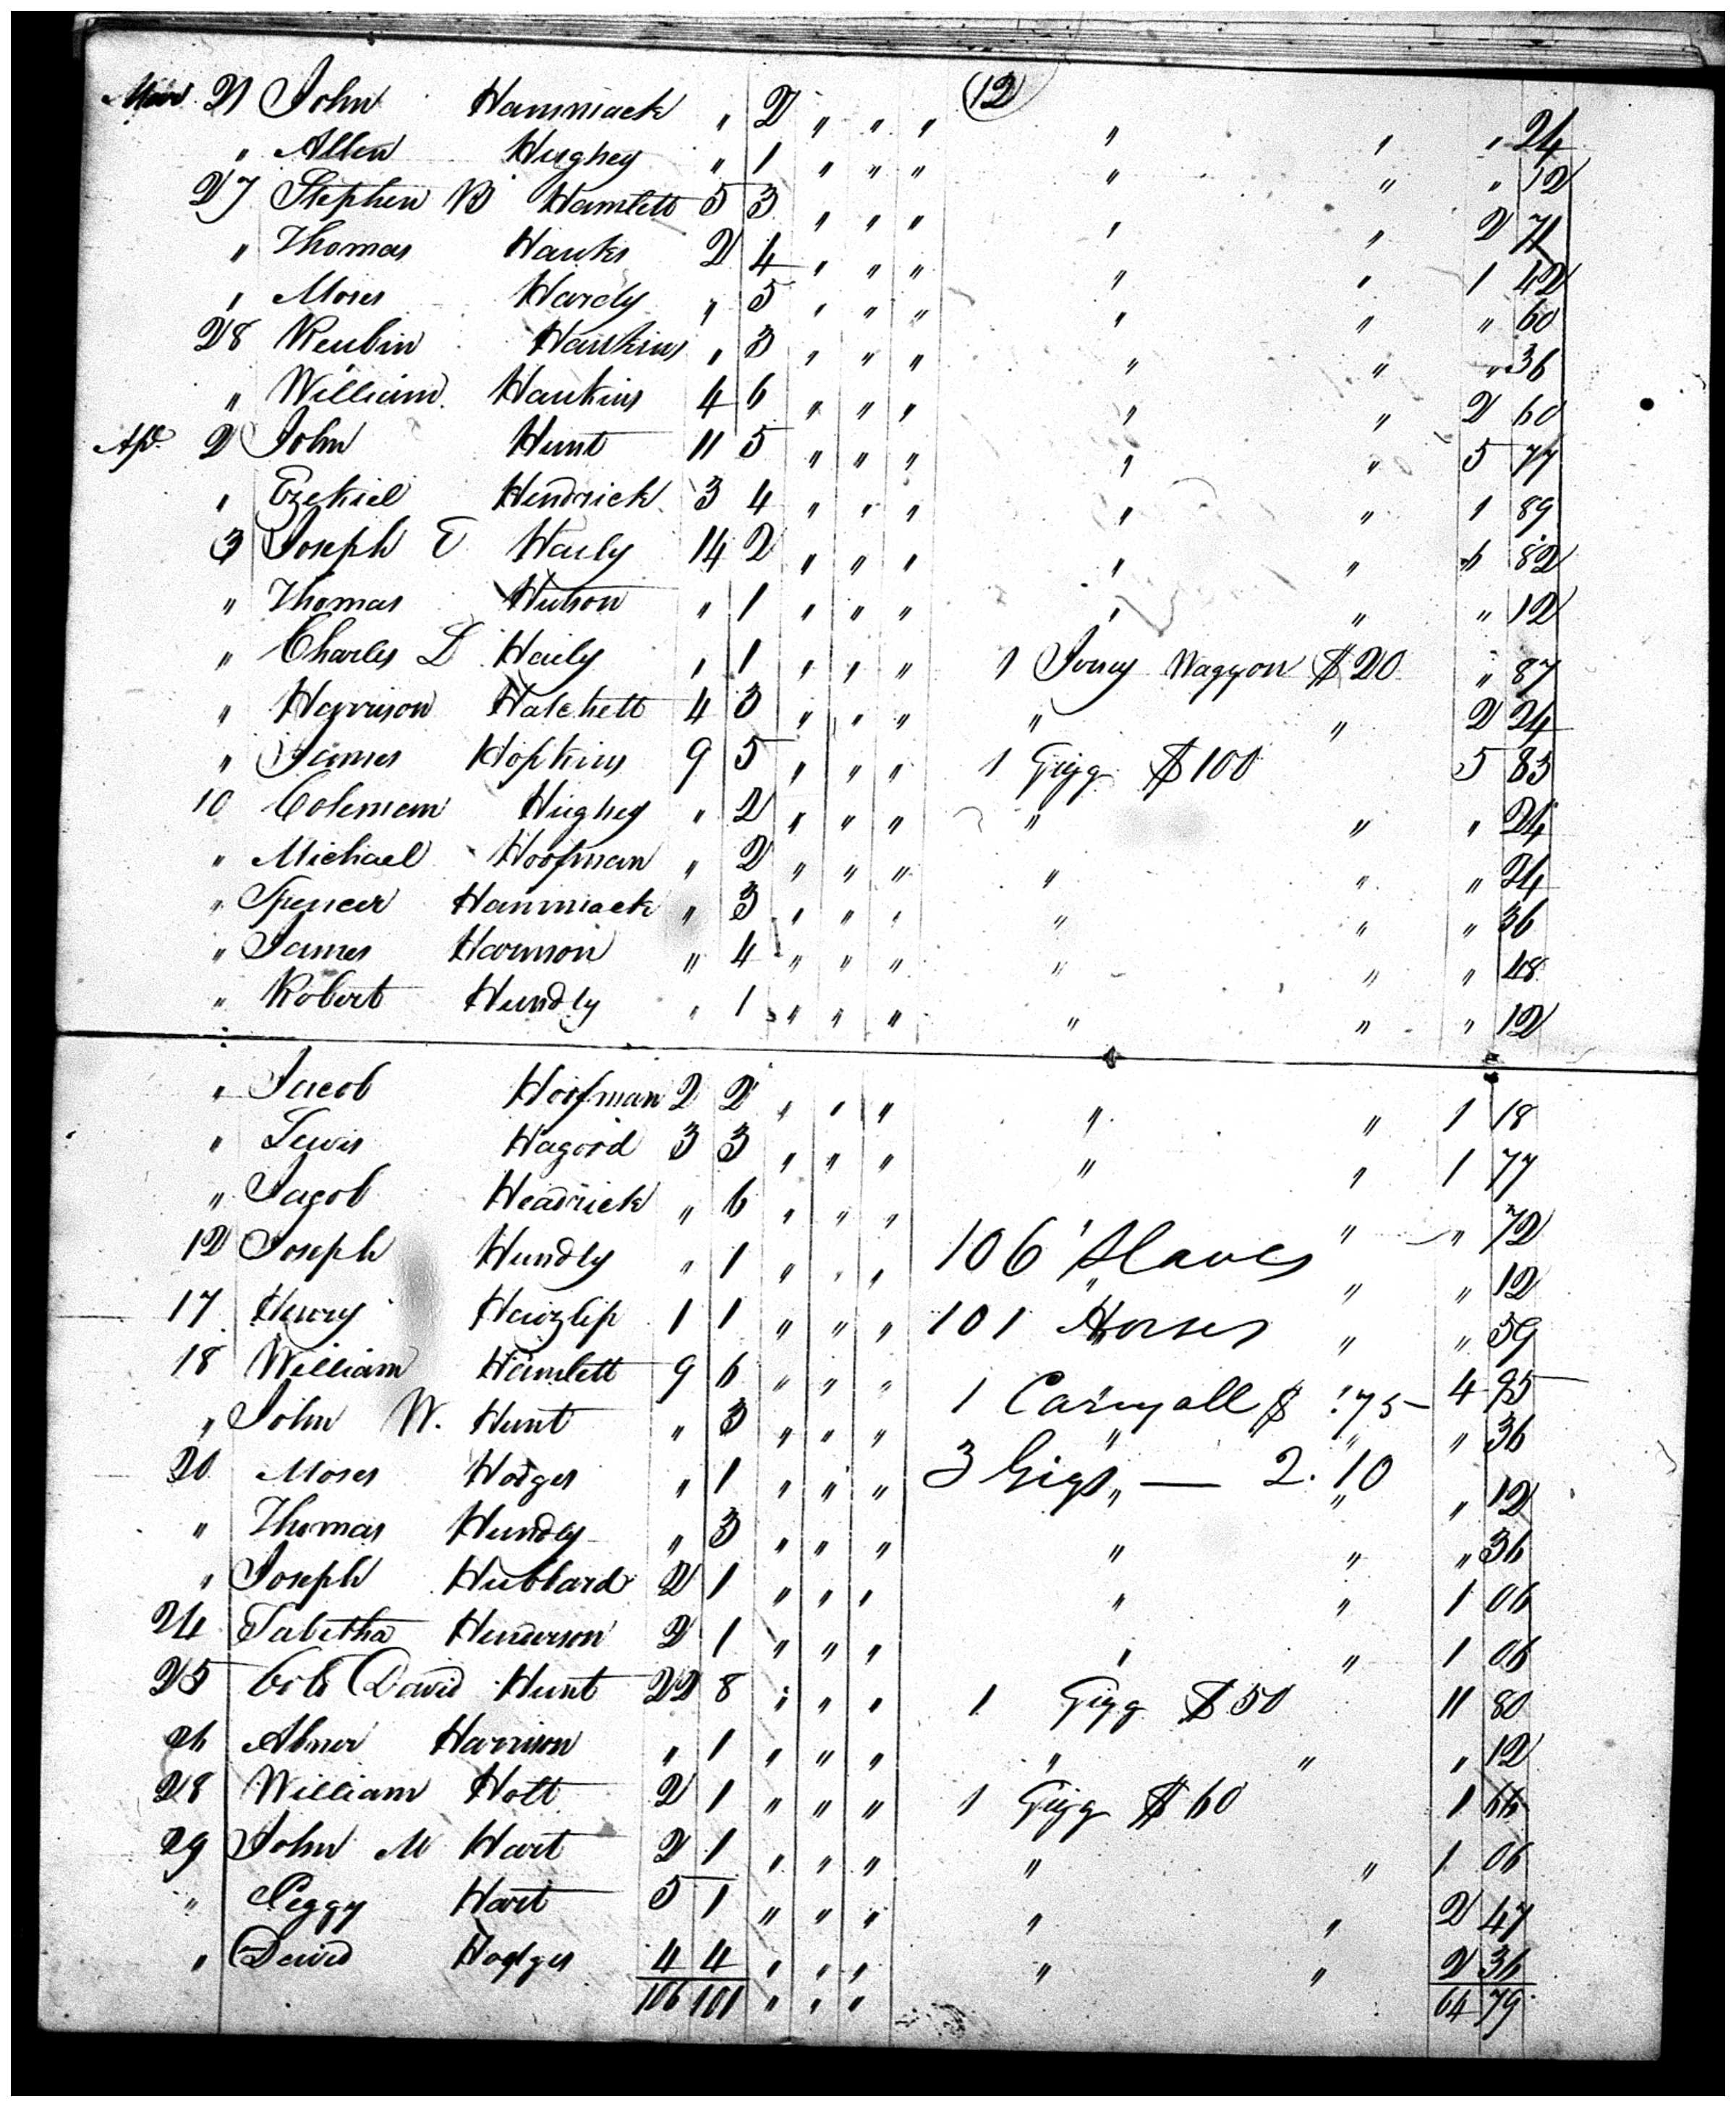 (12)
Mar 21 John Hammack " 2 " " " " " " 24
" Allen Hughey " 1 " " " " " " 12
27 Stephen B Hamlett 5 3 " " " " " 2 71
" Thomas Hanks 2 4 " " " " " 1 42
" Moses Hardy " 5 " " " " " " 60
28 Reubin Hankins " 3 " " " " " " 36
" William Hankins 4 6 " " " " " 2 60
Ap. 2 John Hunt 11 5 " " " " " 5 77
" Ezekiel Hendrick 3 4 " " " " " 1 89
3 Joseph E Haily 14 2 " " " " " 6 82
" Thomas Hutson " 1 " " " " " " 12
" Charles L Haily " 1 " " " 1 Jersy Waggon $20 " 87
" Harrison Hatchett 4 3 " " " " " 2 24
" James Hopkins 9 5 " " " 1 Gigg $100 5 83
10 Coleman Hughey " 2 " " " " " " 24
" Michael Hoofman " 2 " " " " " " 24
" Spencer Hammack " 3 " " " " " " 36
" James Harrison " 4 " " " " " " 48
" Robert Hundly " 1 " " " " " " 12
" Jacob Hoofman 2 2 " " " " " 1 18
" Lewis Hagord 3 3 " " " " " 1 77
" Jacob Headrick " 6 " " " " " " 72
12 Joseph Hundly " 1 " " " 106 Slaves " " 12
17 Henry Haizlip 1 1 " " " 101 Horses " " 59
18 William Hamlett 9 6 " " " 1 Carryall $ 75 4 95
" John W. Hunt " 3 " " " " " " 36
20 Moses Hodges " 1 " " " 3 Gigs — 2.10 " 12
" Thomas Hundly " 3 " " " " " " 36
" Joseph Hubbard 2 1 " " " " " 1 06
24 Tabitha Henderson 2 1 " " " " " 1 06
25 Col David Hunt 22 8 " " " 1 Gigg $50 11 80
26 Abner Harrison " 1 " " " " " " 12
28 William Holt 2 1 " " " 1 Gigg $60 1 66
29 John M Hart 2 1 " " " " " 1 06
" Peggy Hart 5 1 " " " " " 2 47
" David Hodges 4 4 " " " " " 2 36
106 101 " " " 64 79